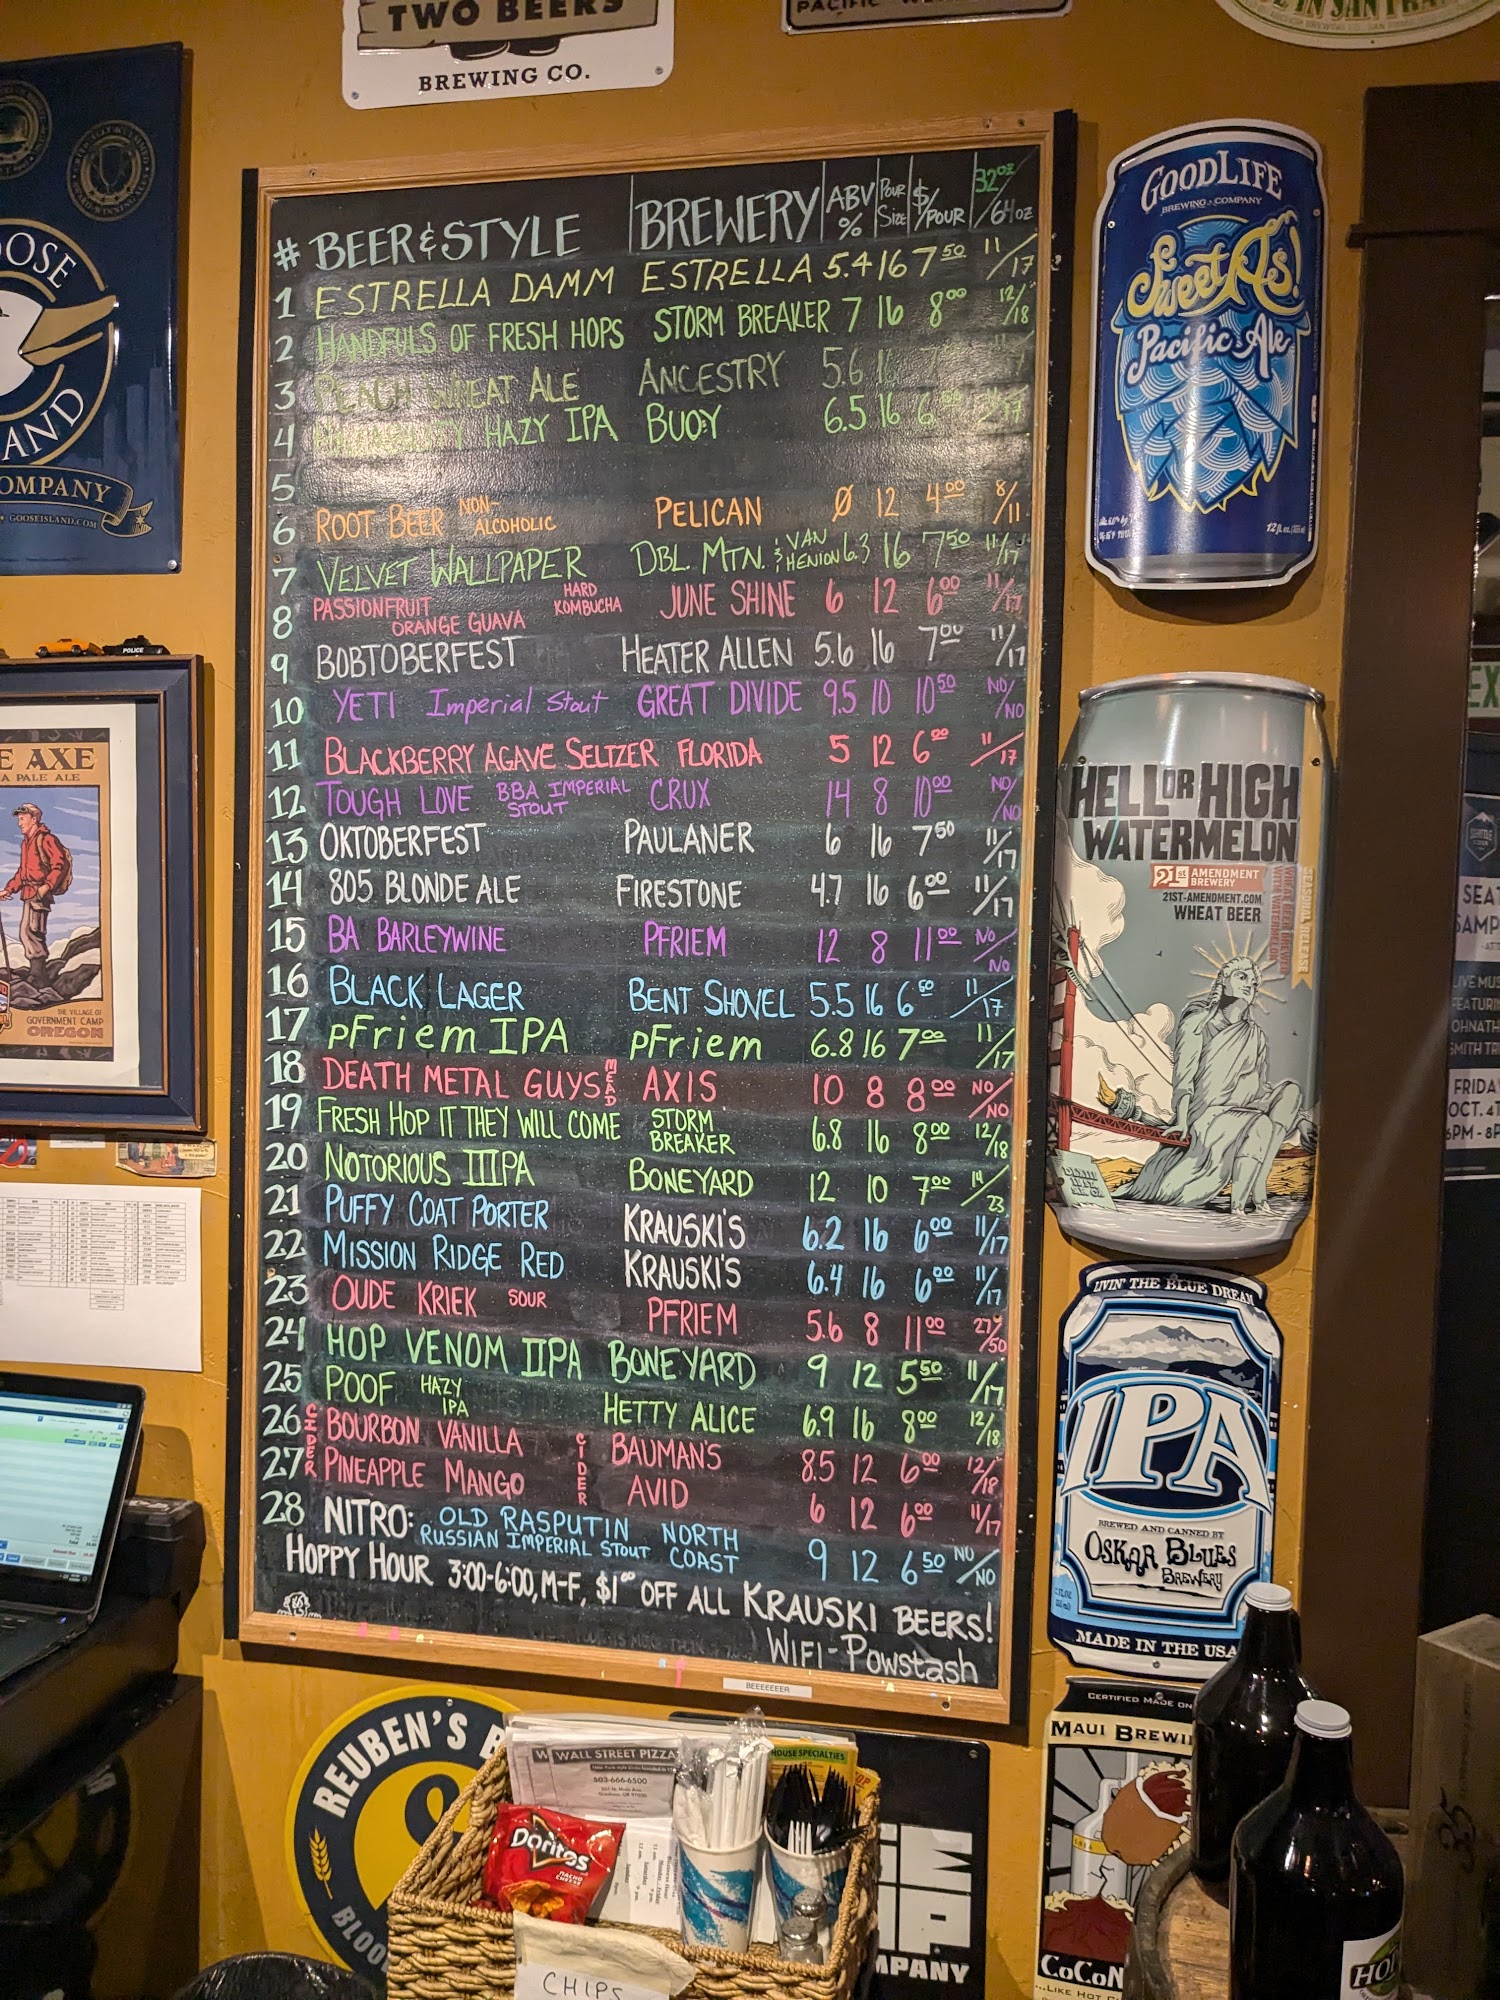 TWO BEERS
BREWING CO.
PACIFIC
GOOSE
ISLAND
COMPANY
GOOSEISLAND.COM
# BEER & STYLE BREWERY ABV % POUR SIZE $/POUR 32oz/64oz
1 ESTRELLA DAMM ESTRELLA 5.4 16 7.50 11/17
2 HANDFULS OF FRESH HOPS STORM BREAKER 7 16 8.00 12/18
3 PEACH WHEAT ALE ANCESTRY 5.6 16
4 HAZY IPA BUOY 6.5 16 6
5
6 ROOT BEER NON-ALCOHOLIC PELICAN Ø 12 4.00 8/11
7 VELVET WALLPAPER DBL. MTN. & VAN HENION 6.3 16 7.50 11/17
8 PASSIONFRUIT ORANGE GUAVA HARD KOMBUCHA JUNE SHINE 6 12 6.00 11/17
9 BOBTOBERFEST HEATER ALLEN 5.6 16 7.00 11/17
10 YETI Imperial Stout GREAT DIVIDE 9.5 10 10.50 NO/NO
11 BLACKBERRY AGAVE SELTZER FLORIDA 5 12 6.00 11/17
12 TOUGH LOVE BBA IMPERIAL STOUT CRUX 14 8 10.00 NO/NO
13 OKTOBERFEST PAULANER 6 16 7.50 11/17
14 805 BLONDE ALE FIRESTONE 4.7 16 6.00 11/17
15 BA BARLEYWINE PFRIEM 12 8 11.00 NO/NO
16 BLACK LAGER BENT SHOVEL 5.5 16 6.50 11/17
17 pFriem IPA pFriem 6.8 16 7.00 11/17
18 DEATH METAL GUYS MEAD AXIS 10 8 8.00 NO/NO
19 FRESH HOP IT THEY WILL COME STORM BREAKER 6.8 16 8.00 12/18
20 NOTORIOUS IIIPA BONEYARD 12 10 7.00 14/23
21 PUFFY COAT PORTER KRAUSKI'S 6.2 16 6.00 11/17
22 MISSION RIDGE RED KRAUSKI'S 6.4 16 6.00 11/17
23 OUDE KRIEK SOUR PFRIEM 5.6 8 11.00 27/50
24 HOP VENOM IIPA BONEYARD 9 12 5.50 11/17
25 POOF HAZY IPA HETTY ALICE 6.9 16 8.00 12/18
26 CIDER BOURBON VANILLA CIDER BAUMAN'S 8.5 12 6.00 12/18
27 PINEAPPLE MANGO AVID 6 12 6.00 11/17
28 NITRO: OLD RASPUTIN RUSSIAN IMPERIAL STOUT NORTH COAST 9 12 6.50 NO/NO
HOPPY HOUR 3:00-6:00, M-F, $1.00 OFF ALL KRAUSKI BEERS!
WIFI-Powstash
BEEEEEEER
GOODLIFE
BREWING COMPANY
Sweet As!
Pacific Ale
HELL OR HIGH
WATERMELON
21st AMENDMENT
BREWERY
21ST-AMENDMENT.COM
WHEAT BEER
SEASONAL RELEASE
LIVIN' THE BLUE DREAM
IPA
BREWED AND CANNED BY
OSKAR BLUES
BREWERY
MADE IN THE USA
CERTIFIED MADE ON
MAUI BREWI
CoCoN
...LIKE HOT
POLICE
E AXE
A PALE ALE
THE VILLAGE OF
GOVERNMENT CAMP
OREGON
REUBEN'S B
WALL STREET PIZZA
503-666-6500
HOUSE SPECIALTIES
Doritos
NACHO CHEESE
CHIPS
MPANY
EX
SEAT
SAMP
LIVE MUS
FEATURIN
OHNATH
SMITH TR
FRIDA
OCT. 4T
6PM - 8P
HO